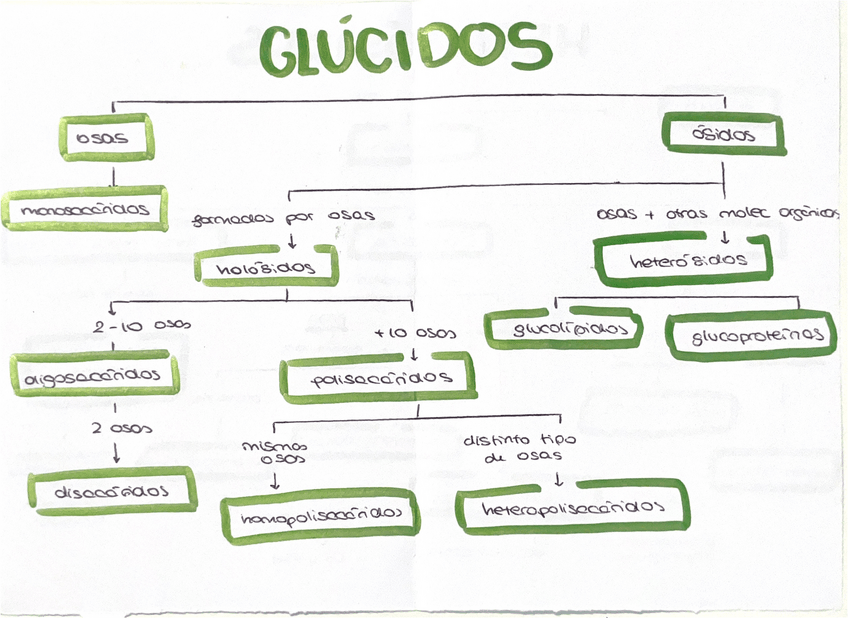 GLÚCIDOS
osas
ósidos
monosacáridos
formados por osas
osas + otras molec orgánicas
holósidos
heterósidos
2-10 osas
+10 osas
glucolípidos
glucoproteínas
oligosacáridos
polisacáridos
2 osas
mismas
osas
distinto tipo
de osas
disacáridos
homopolisacáridos
heteropolisacáridos